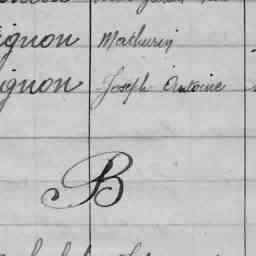 ignon Mathurin
ignon Joseph Antoine
B